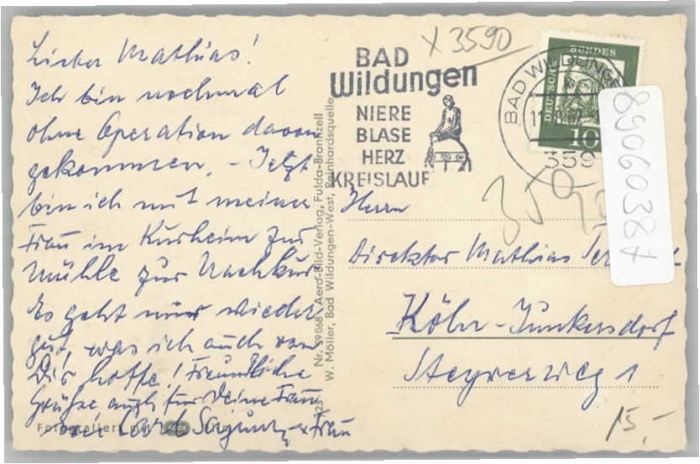 Lieber Mathias!
Ich bin nochmal
ohne Operation davon
gekommen. - Jetzt
bin ich mit meiner
Frau im Kurheim zur
Mühle zur Nachkur
Es geht mir wieder
gut, was ich auch von
Dir hoffe! Freundliche
Grüße auch für Deine Frau
u. Frau
Fotografiert mit
Nr. 59068 Aero-Bild-Verlag, Fulda-Bronnzell
W. Möller, Bad Wildungen-West, Reinhardsquelle
X 3590
BAD
Wildungen
NIERE
BLASE
HERZ
KREISLAUF
BAD WILDUNGEN
359
DEUTSCHE BUNDES
10
89060387
3590
Herrn
Direktor Mathias
Köln-Junkersdorf
Steyrerweg 1
15,-